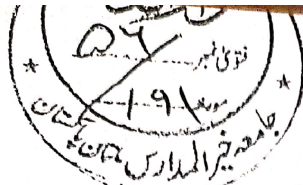 فتویٰ نمبر ۵۶
۱۹۱
جامعہ خیر المدارس ملتان پاکستان